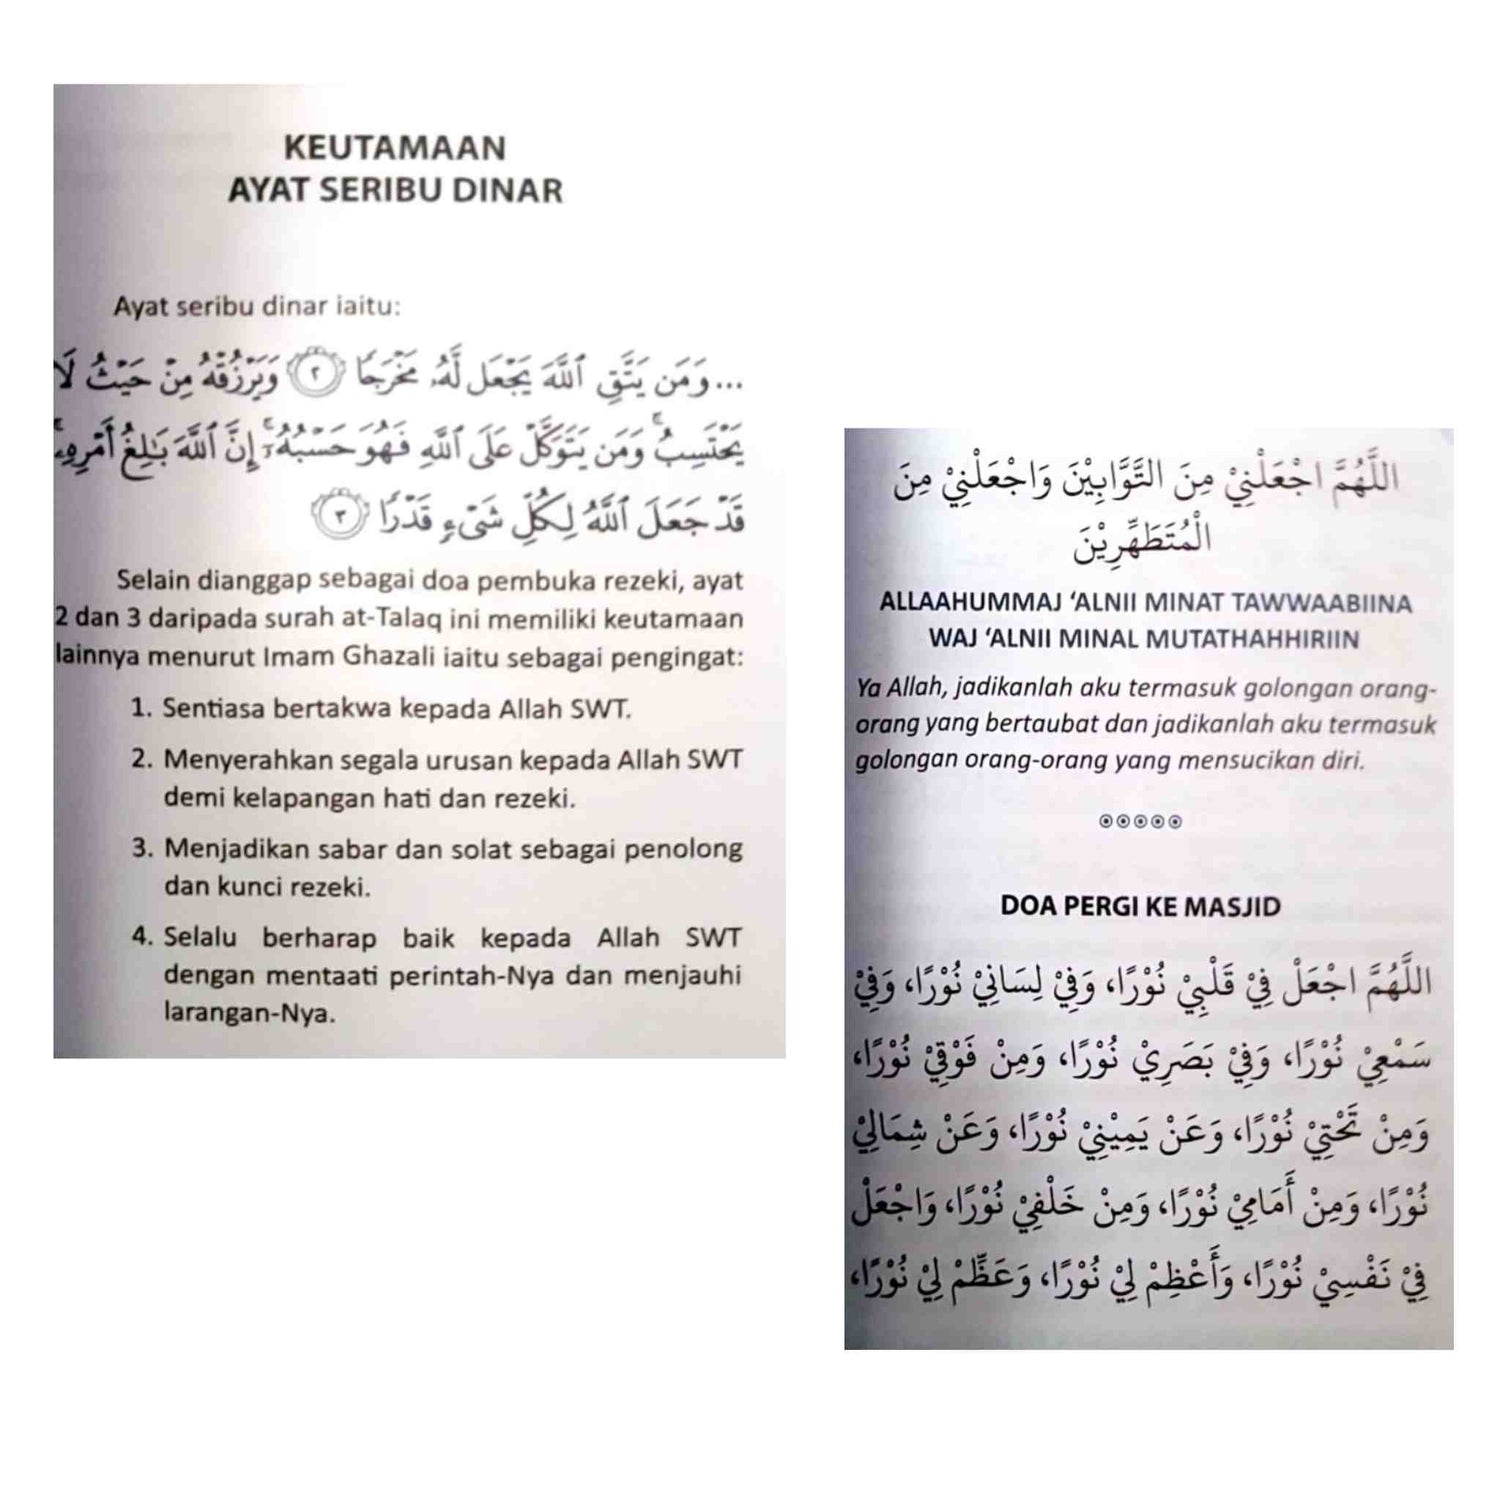 KEUTAMAAN
AYAT SERIBU DINAR
Ayat seribu dinar iaitu:
...وَمَن يَتَّقِ ٱللَّهَ يَجْعَل لَّهُۥ مَخْرَجًا ٢ وَيَرْزُقْهُ مِنْ حَيْثُ لَا
يَحْتَسِبُ ۚ وَمَن يَتَوَكَّلْ عَلَى ٱللَّهِ فَهُوَ حَسْبُهُۥٓ ۚ إِنَّ ٱللَّهَ بَـٰلِغُ أَمْرِهِۦ ۚ
قَدْ جَعَلَ ٱللَّهُ لِكُلِّ شَىْءٍ قَدْرًا ٣
Selain dianggap sebagai doa pembuka rezeki, ayat
2 dan 3 daripada surah at-Talaq ini memiliki keutamaan
lainnya menurut Imam Ghazali iaitu sebagai pengingat:
1. Sentiasa bertakwa kepada Allah SWT.
2. Menyerahkan segala urusan kepada Allah SWT
demi kelapangan hati dan rezeki.
3. Menjadikan sabar dan solat sebagai penolong
dan kunci rezeki.
4. Selalu berharap baik kepada Allah SWT
dengan mentaati perintah-Nya dan menjauhi
larangan-Nya.
اللَّهُمَّ اجْعَلْنِيْ مِنَ التَّوَّابِيْنَ وَاجْعَلْنِيْ مِنَ
الْمُتَطَهِّرِيْنَ
ALLAAHUMMAJ ‘ALNII MINAT TAWWAABIINA
WAJ ‘ALNII MINAL MUTATHAHHIRIIN
Ya Allah, jadikanlah aku termasuk golongan orang-
orang yang bertaubat dan jadikanlah aku termasuk
golongan orang-orang yang mensucikan diri.
DOA PERGI KE MASJID
اللَّهُمَّ اجْعَلْ فِيْ قَلْبِيْ نُوْرًا، وَفِيْ لِسَانِيْ نُوْرًا، وَفِيْ
سَمْعِيْ نُوْرًا، وَفِيْ بَصَرِيْ نُوْرًا، وَمِنْ فَوْقِيْ نُوْرًا،
وَمِنْ تَحْتِيْ نُوْرًا، وَعَنْ يَمِيْنِيْ نُوْرًا، وَعَنْ شِمَالِيْ
نُوْرًا، وَمِنْ أَمَامِيْ نُوْرًا، وَمِنْ خَلْفِيْ نُوْرًا، وَاجْعَلْ
فِيْ نَفْسِيْ نُوْرًا، وَأَعْظِمْ لِيْ نُوْرًا، وَعَظِّمْ لِيْ نُوْرًا،